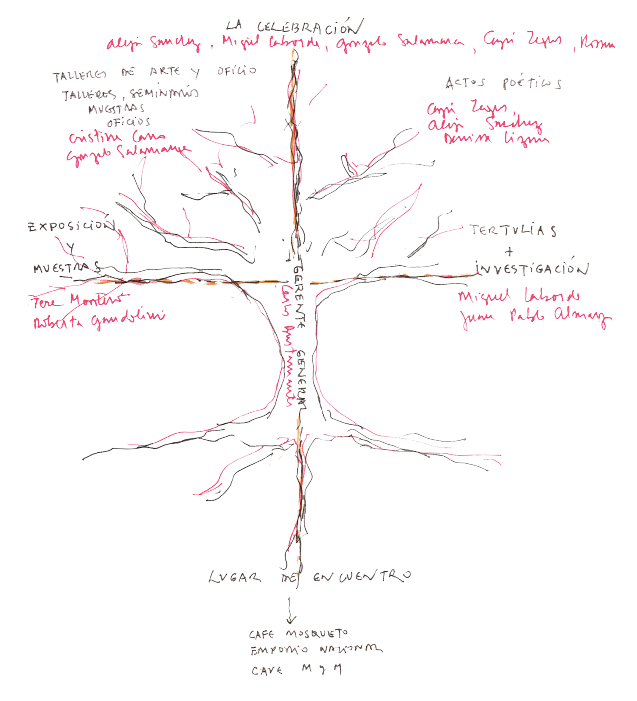 LA CELEBRACIÓN
Aleja Sanchez, Miguel Laborde, Gonzalo Salamanca, Cayri Zegers, Rosana
TALLERES DE ARTE Y OFICIO
TALLERES, SEMINARIOS
MUESTRAS
OFICIOS
Cristina Cano
Gonzalo Salamanca
ACTOS POÉTICOS
Cayri Zegers
Aleja Sanchez
Denisse
EXPOSICIÓN
Y
MUESTRAS
Tere Montero
Roberta Gandolini
TERTULIAS
+
INVESTIGACIÓN
Miguel Laborde
Juan Pablo Almarz
GERENTE GENERAL
Carlos Bustamante
LUGAR DE ENCUENTRO
CAFE MOSQUETO
EMPORIO NACIONAL
CAVE M y M